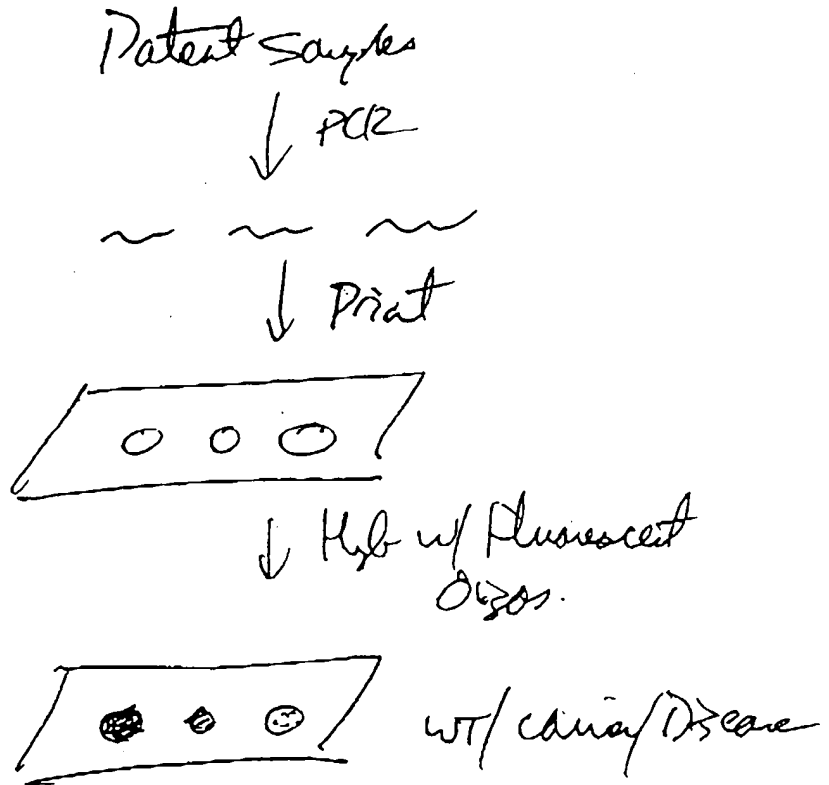 Patient Samples
PCR
Print
Hyb w/ Fluorescent
Oligos.
WT/Carrier/Disease